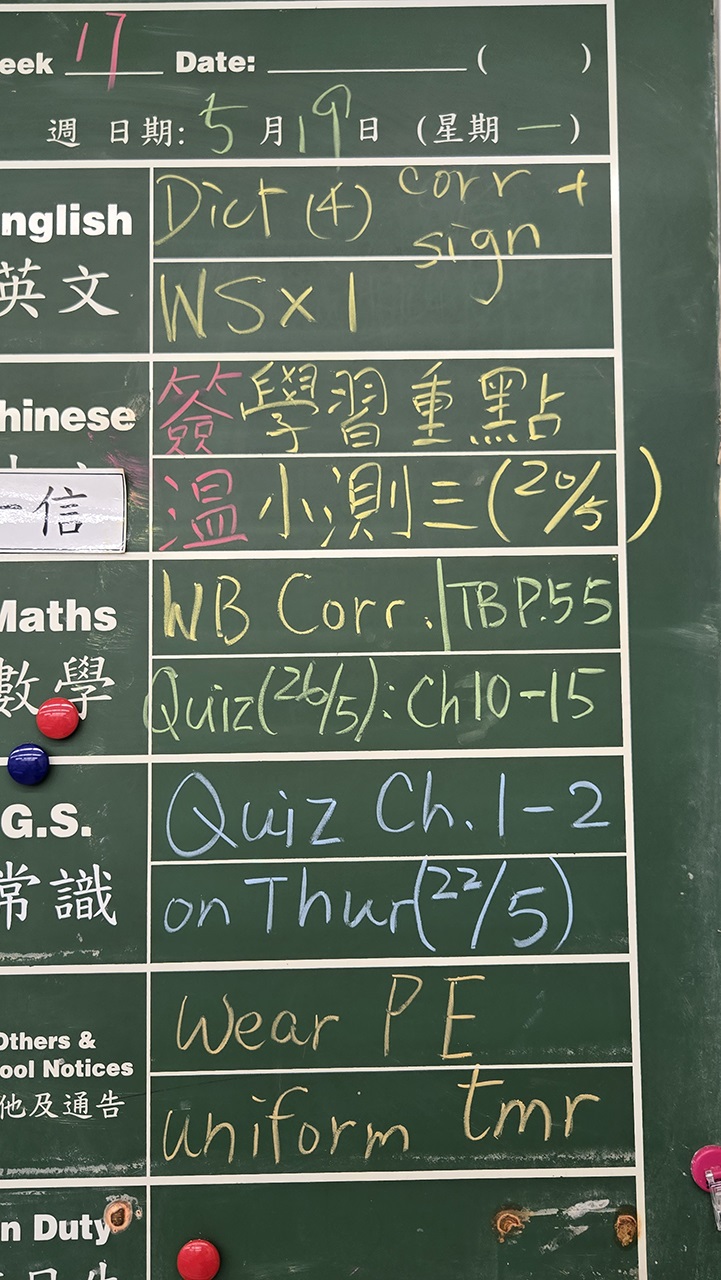 eek 17 Date: ( )
週 日期: 5 月 19 日 (星期 一)
nglish
英文
Dict (4) corr + sign
WS x 1
hinese
一信
簽 學習重點
温 小測三 (20/5)
Maths
數學
WB Corr. | TB P.55
Quiz (26/5): Ch 10-15
G.S.
常識
Quiz Ch. 1-2
on Thur (22/5)
Others &
ool Notices
他及通告
Wear PE
uniform tmr
n Duty